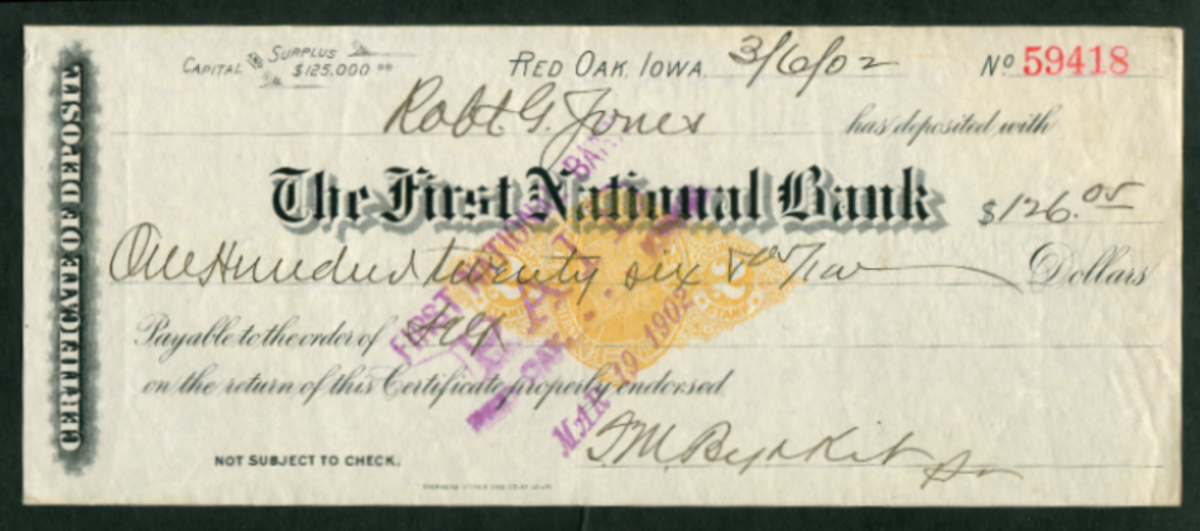 CERTIFICATE OF DEPOSIT
CAPITAL AND SURPLUS $125,000.00
RED OAK, IOWA, 3/6/02 No 59418
Robt. G. Jones has deposited with
The First National Bank $126.05
One Hundred twenty six & 05/100 Dollars
Payable to the order of Self
on the return of this Certificate properly endorsed
NOT SUBJECT TO CHECK.
FIRST NATIONAL BANK
PAID
MAR 19 1902
2 2
STAMP